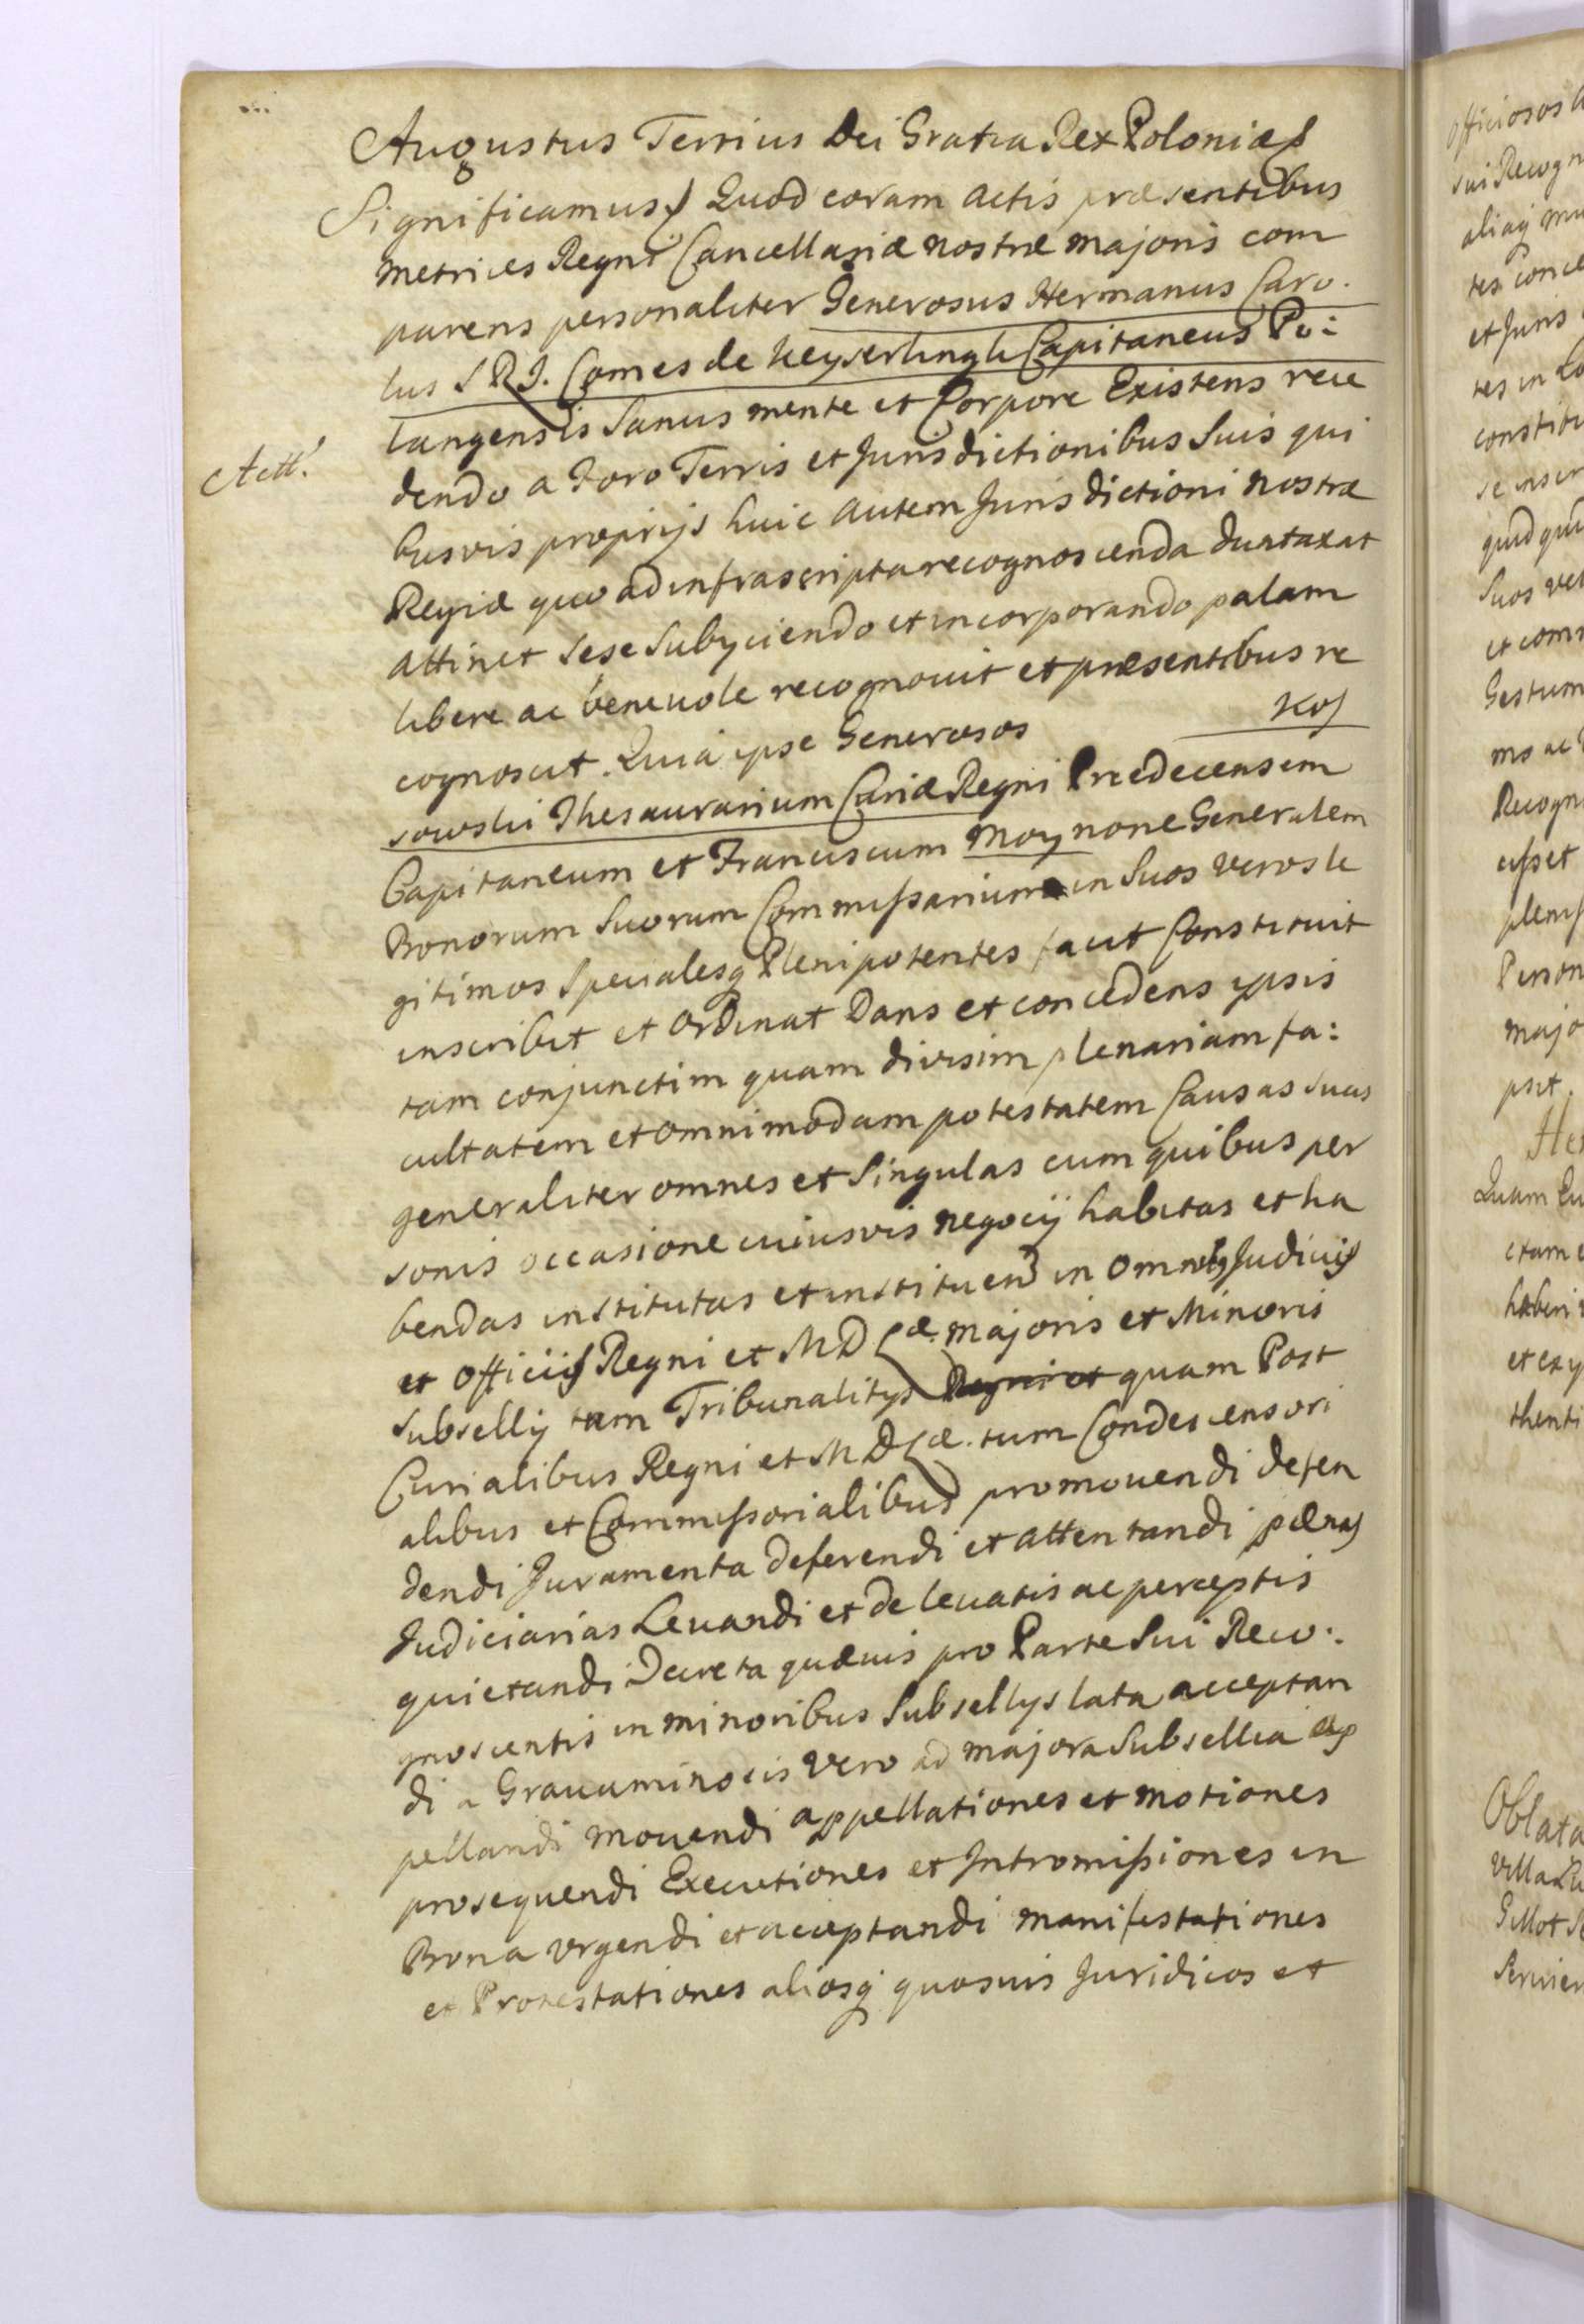 Augustus Tertius Dei Gratia Rex Poloniæ
Significamus Quod coram Actis præsentibus
Metrices Regni Cancellariæ nostræ Majoris com
parens personaliter Generosus Hermanus Caro.
lus S R I. Comes de Keyserlingk Capitaneus Po:
langensis Sanus mente et Corpore Existens rece
dendo a Foro Terris et Jurisdictionibus Suis qui
busvis proprijs huic autem Jurisdictioni nostræ
Regiæ quo ad infrascripta recognoscenda duntaxat
Attinet sese Subyciendo et incorporando palam
libere ac benevole recognovit et præsentibus re
cognoscit. Quia ipse Generosos Kos
sowski Thesaurarium Curiæ Regni Predecensem
Capitaneum et Franciscum Moynone Generalem
Bonorum Suorum Commissarium in Suos veros le
gitimos Specialesq Plenipotentes facit Constituit
inscribit et Ordinat Dans et concedens ipsis
tam conjunctim quam divisim plenariam fa:
cultatem et omnimodam potestatem Causas suas
generaliter omnes et Singulas cum quibus per
sonis occasione cuiusvis negocij habitas et ha
bendas institutas et instituen in Omnibq Judicijs
et Officijs Regni et M D L æ. Majoris et Minoris
subsellij tam Tribunalitys Regni et quam Post
Curialibus Regni et M D L æ. tum Condescensori
alibus et Commissorialibus promovendi defen
dendi Juramenta deferendi et attentandi pænas
Judiciarias Levandi et de levatis ac perceptis
quietandi Decreta quævis pro Parte Sui Reco:
gnoscentis in minoribus Subsellys lata acceptan
di a Gravaminosis vero ad majora Subsellia ap
pellandi movendi appellationes et motiones
prosequendi Executiones et Intromissiones in
Bona urgendi et acceptandi manifestationes
et Protestationes aliosq quosvis Juridicos et
Actt.
officiosos
sui Recogn
aliaq mu
tes conce
et Juris
tes in
constitu
se inser
quid qui
Suos vel
et com
Gestum
Recogn
Person
majo
psit.
Quam
etiam
haberi
thenti
Oblata
Villa
Gillot